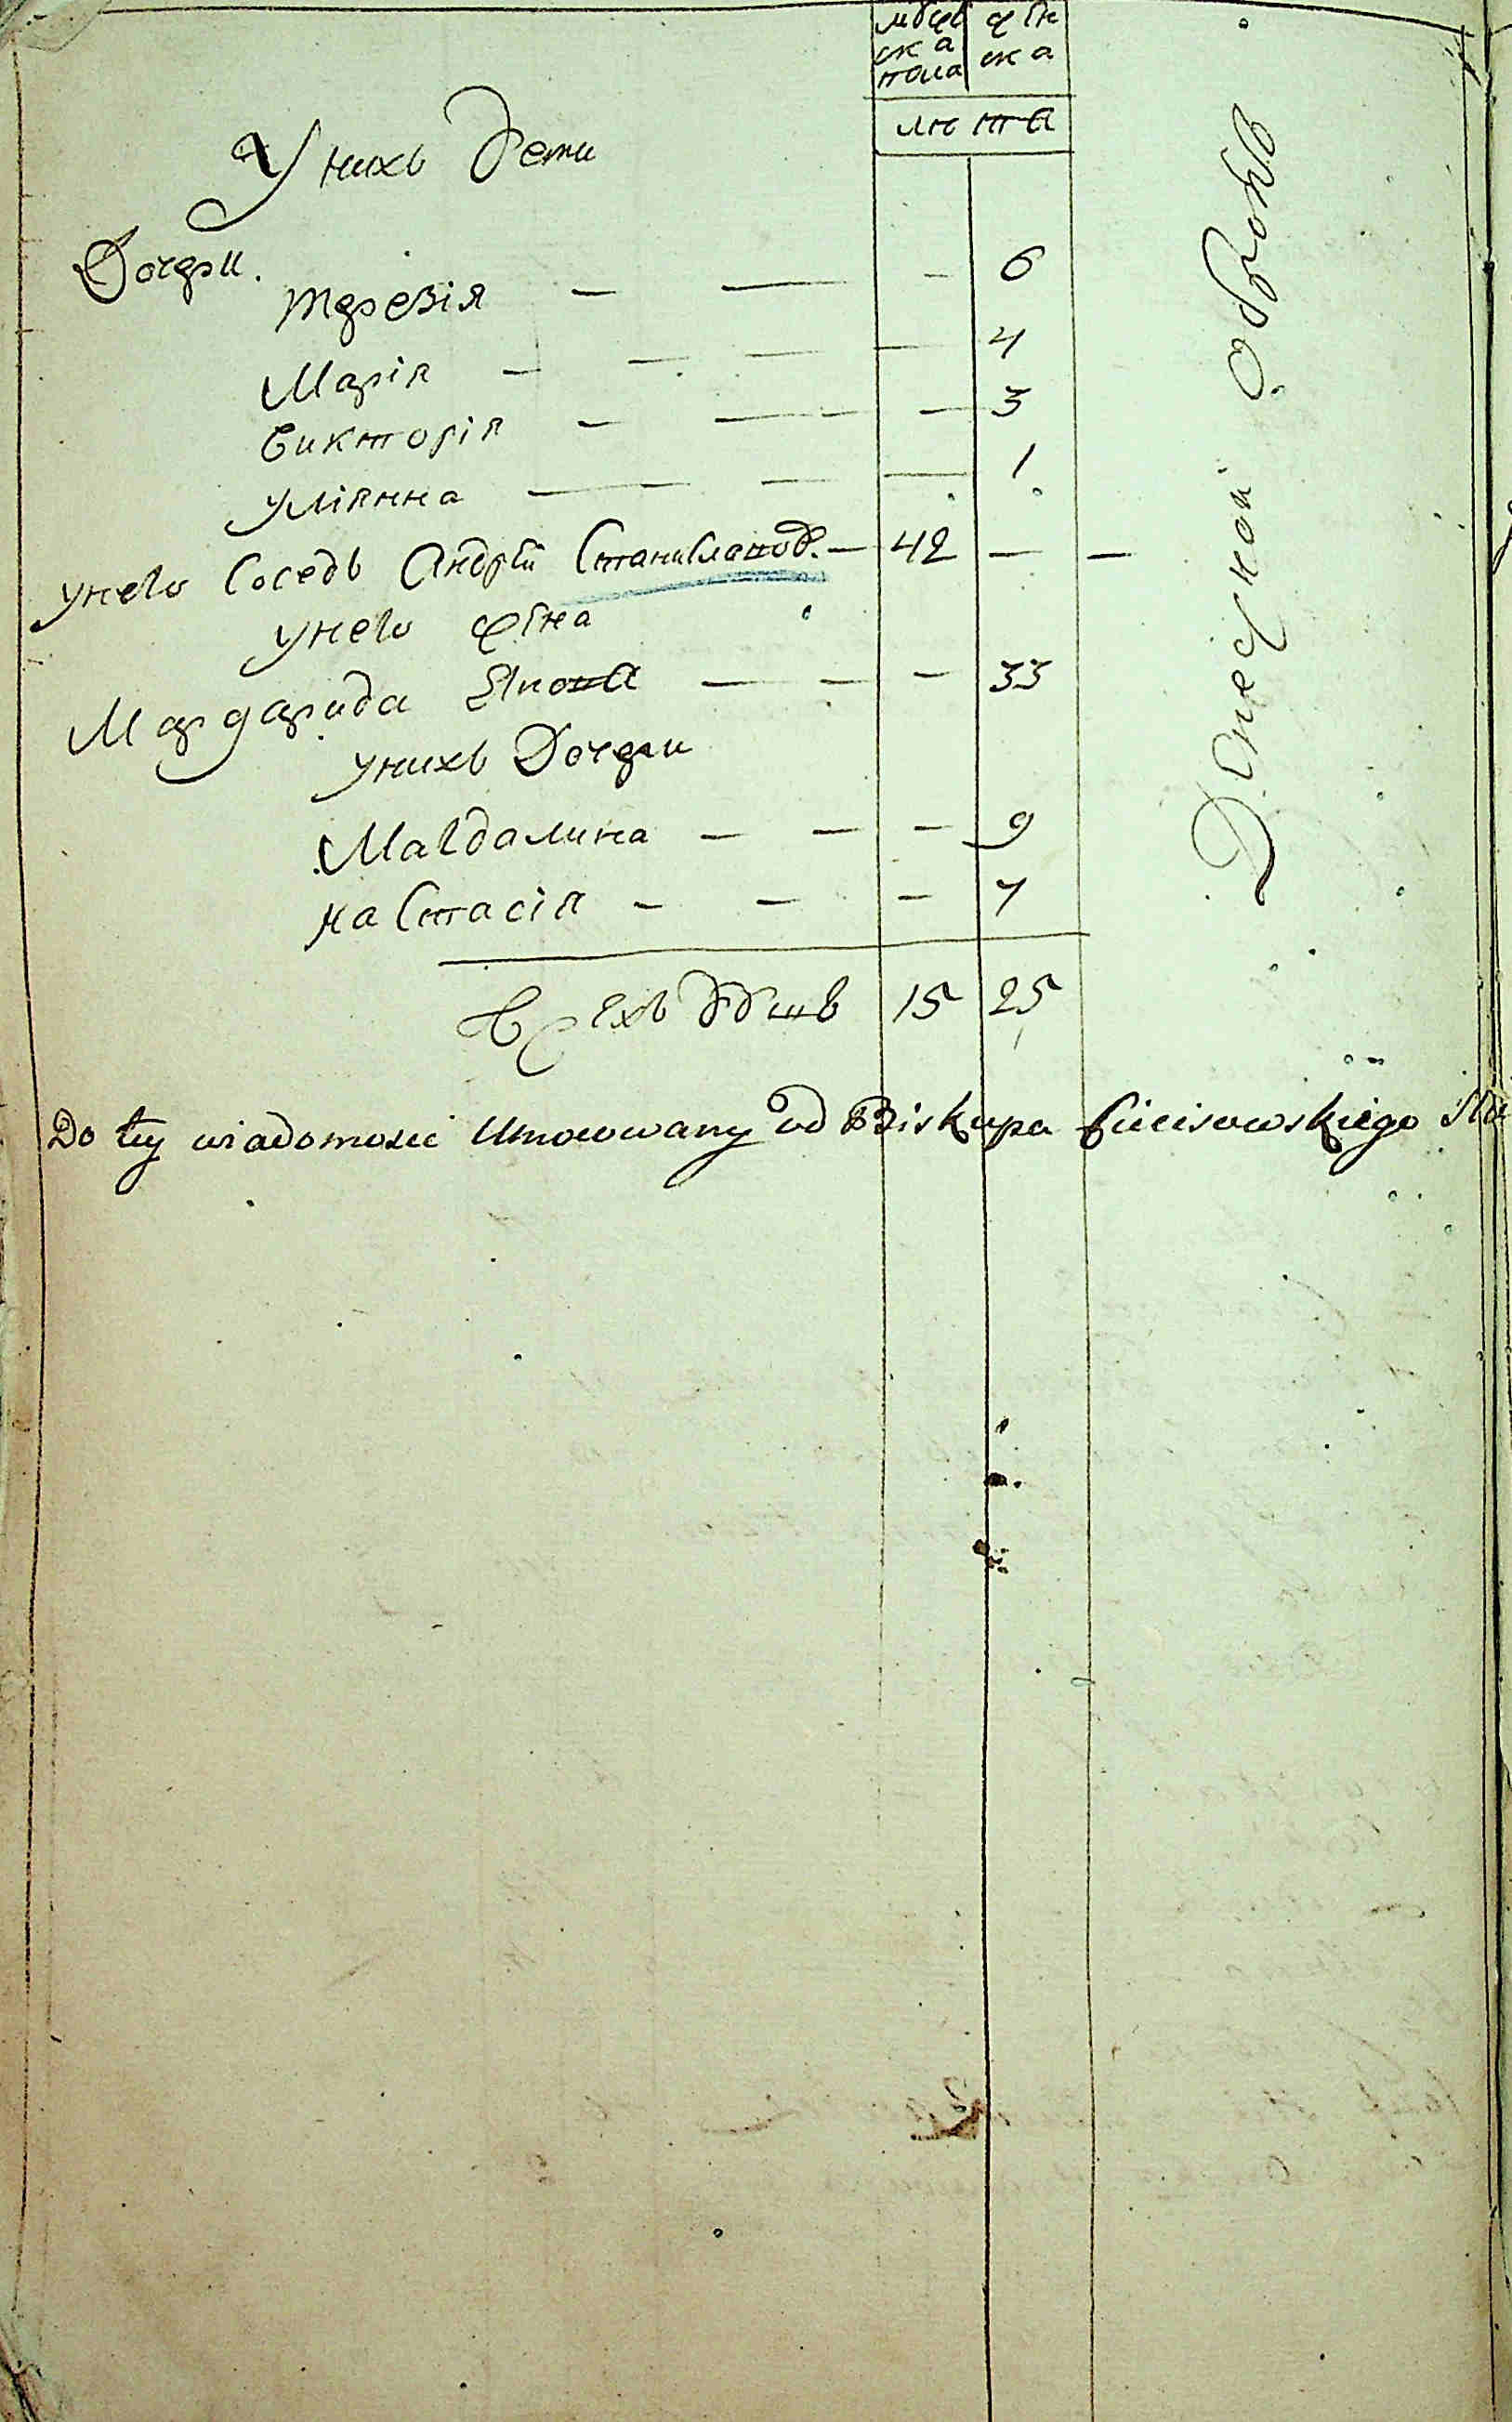 мужеска пола | женска
лета
У нихъ дети
Дочери.
терезія — — — 6
Марія — — — — 4
викторія — — — 3
улiянна — — — 1
у него Соседъ Андрѣй Станиславов. — 42 — —
у него жена
Маргарида — — — 33
у нихъ Дочери
Магдалина — — — 9
наСтасія — — — 7
Всехъ душъ 15 25
Do tey wiadomosci Umocowany od Biskupa Cieciszowskiego